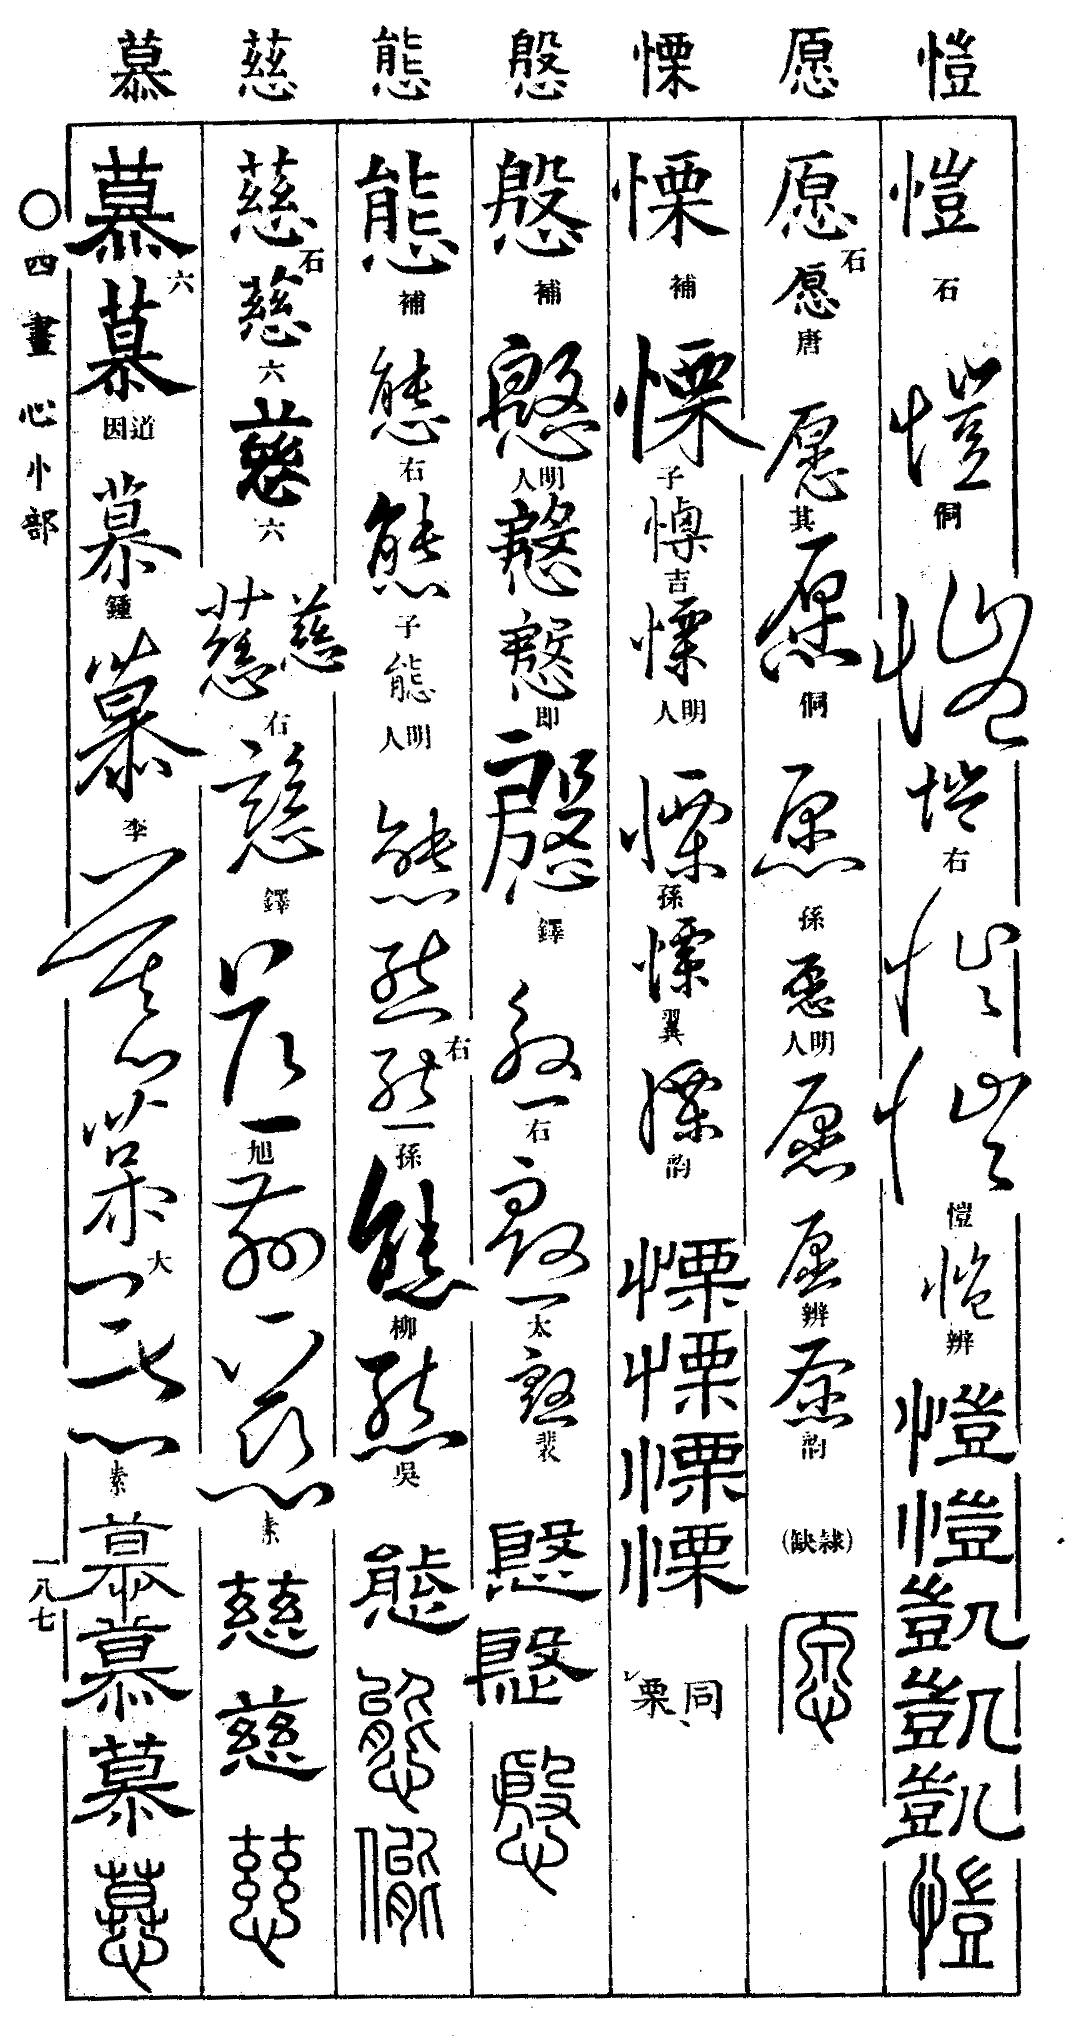 愷 愿 慄 慇 態 慈 慕
愷 石 愷 侗 愷 愷 右 愷 愷 愷 愷 辨 愷 愷 凱 凱 凱 愷
愿 石 愿 唐 愿 其 愿 侗 愿 孫 愿 明人 愿 愿 辨 愿 韵 (隷缺) 愿
慄 補 慄 子 慄 吉 慄 明人 慄 孫 慄 翼 慄 韵 慄 慄 慄 慄 同栗
慇 補 慇 明人 慇 慇 即 慇 鐸 慇 右 慇 太 慇 裴 慇 慇 慇
態 補 態 右 態 子 態 明人 態 態 右 態 孫 態 柳 態 吳 態 態
慈 石 慈 六 慈 六 慈 慈 右 慈 鐸 慈 旭 慈 慈 素 慈 慈 慈
慕 六 慕 道因 慕 鍾 慕 李 慕 慕 大 慕 素 慕 慕 慕 慕
〇四畫 心忄部
一八七